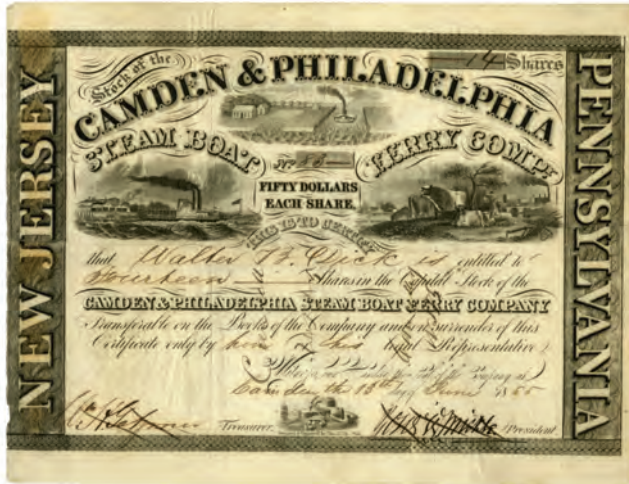 NEW JERSEY
PENNSYLVANIA
14 Shares
Stock of the
CAMDEN & PHILADELPHIA
STEAM BOAT FERRY COMPY
No
FIFTY DOLLARS
EACH SHARE.
THIS IS TO CERTIFY
that Walter B. Dick is entitled to
Fourteen Shares in the Capital Stock of the
CAMDEN & PHILADELPHIA STEAM BOAT FERRY COMPANY
Transferable on the Books of the Company and on surrender of this
Certificate only by him or his legal Representative
Camden the 13th day of June 1855
Treasurer.
President.